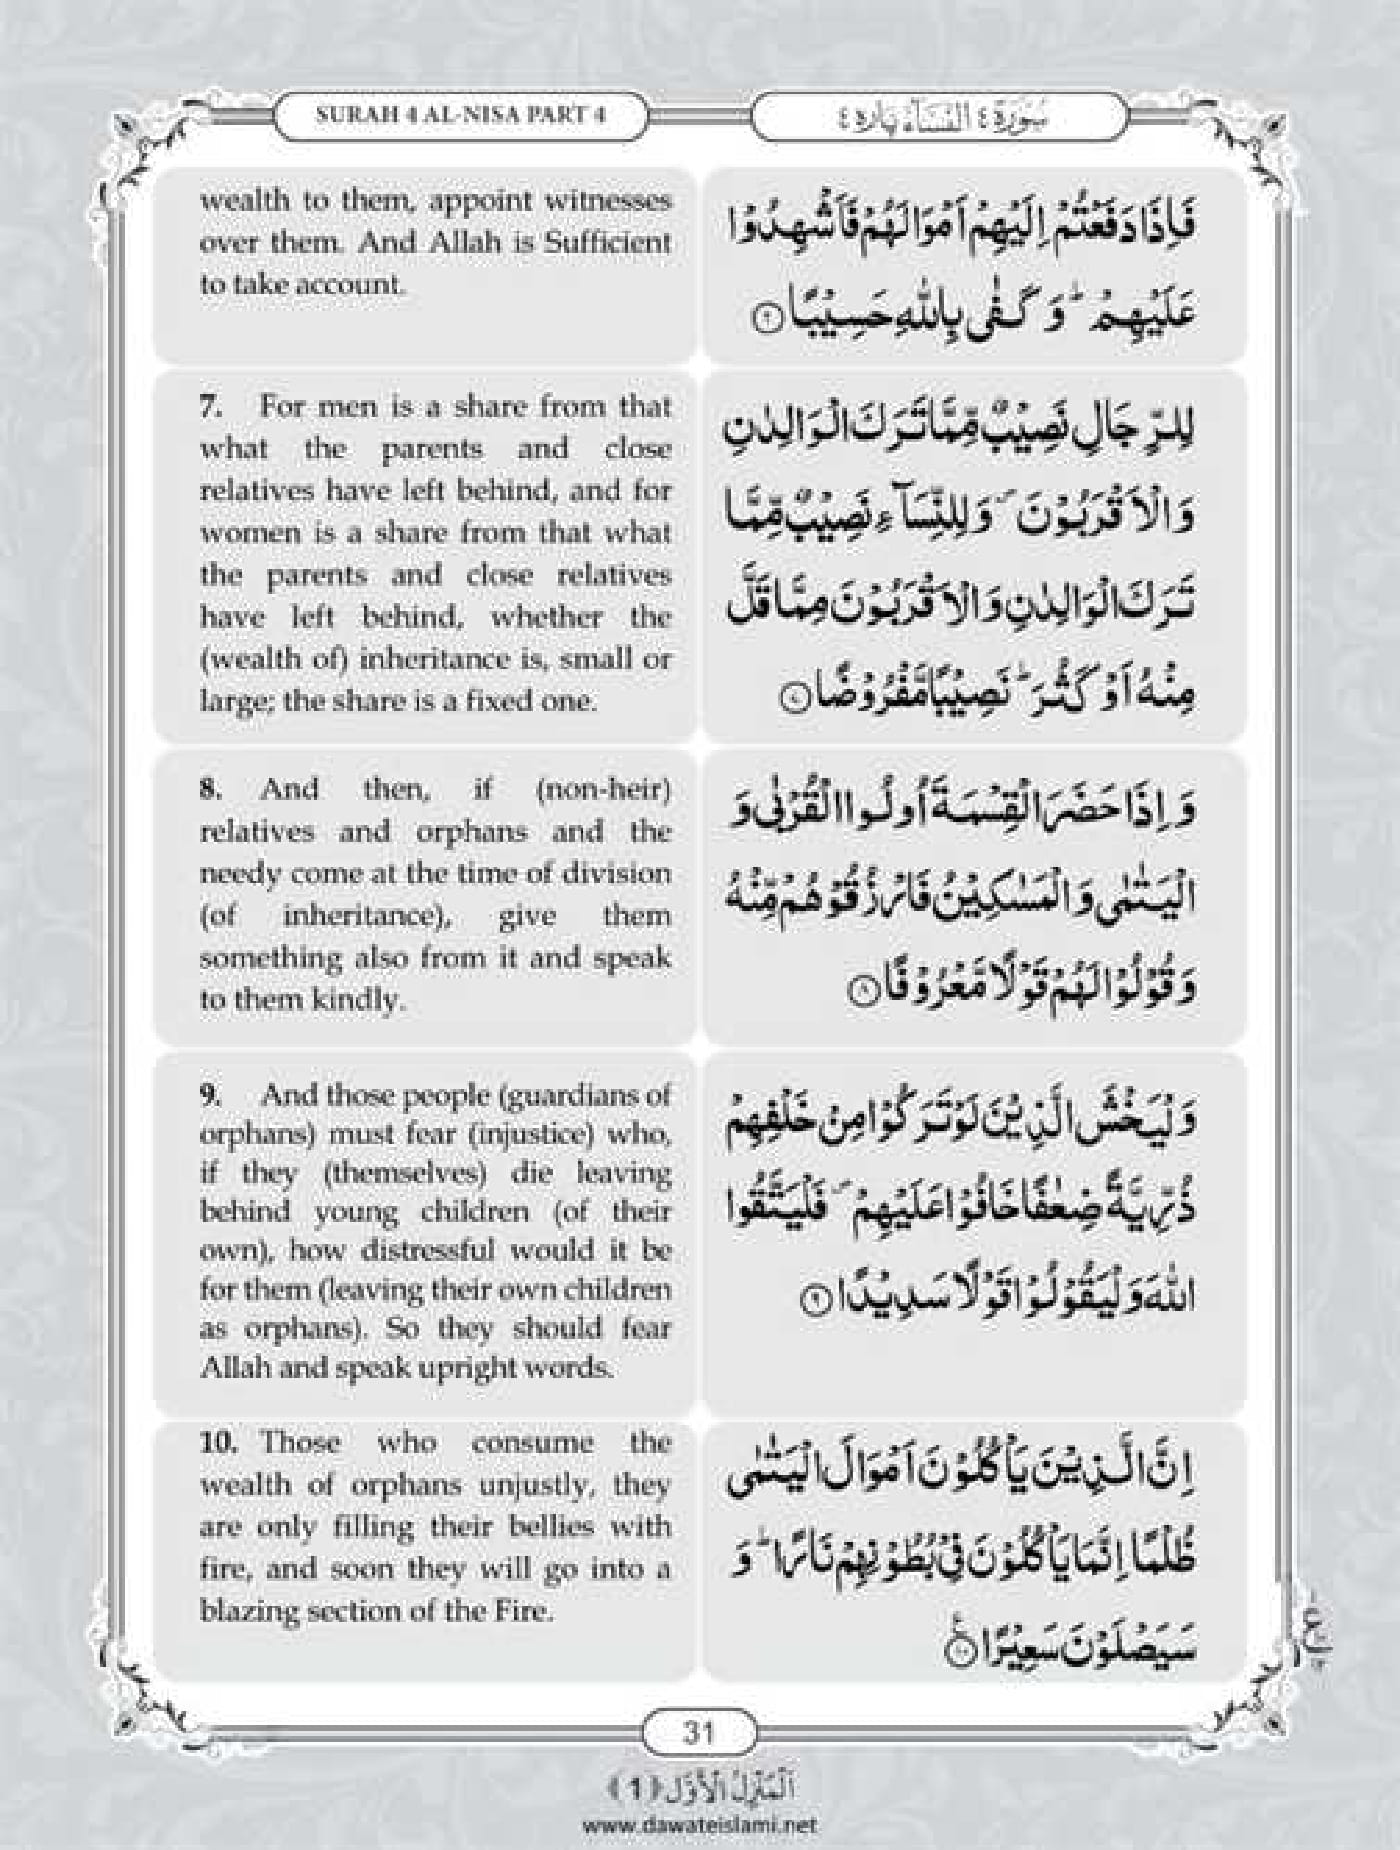 SURAH 4 AL-NISA PART 4
سُوْرَةُ ٤ النِّسَآء پاره ٤
wealth to them, appoint witnesses
over them. And Allah is Sufficient
to take account.
فَاِذَا دَفَعْتُمْ اِلَيْهِمْ اَمْوَالَهُمْ فَاَشْهِدُوْا
عَلَيْهِمْ ؕ وَ كَفٰى بِاللّٰهِ حَسِيْبًا ۝۶
7. For men is a share from that
what the parents and close
relatives have left behind, and for
women is a share from that what
the parents and close relatives
have left behind, whether the
(wealth of) inheritance is, small or
large; the share is a fixed one.
لِلرِّجَالِ نَصِيْبٌ مِّمَّا تَرَكَ الْوَالِدٰنِ
وَ الْاَقْرَبُوْنَ ۪ وَ لِلنِّسَآءِ نَصِيْبٌ مِّمَّا
تَرَكَ الْوَالِدٰنِ وَ الْاَقْرَبُوْنَ مِمَّا قَلَّ
مِنْهُ اَوْ كَثُرَ ؕ نَصِيْبًا مَّفْرُوْضًا ۝۷
8. And then, if (non-heir)
relatives and orphans and the
needy come at the time of division
(of inheritance), give them
something also from it and speak
to them kindly.
وَ اِذَا حَضَرَ الْقِسْمَةَ اُولُوا الْقُرْبٰى وَ
الْيَتٰمٰى وَ الْمَسٰكِيْنُ فَارْزُقُوْهُمْ مِّنْهُ
وَ قُوْلُوْا لَهُمْ قَوْلًا مَّعْرُوْفًا ۝۸
9. And those people (guardians of
orphans) must fear (injustice) who,
if they (themselves) die leaving
behind young children (of their
own), how distressful would it be
for them (leaving their own children
as orphans). So they should fear
Allah and speak upright words.
وَ لْيَخْشَ الَّذِيْنَ لَوْ تَرَكُوْا مِنْ خَلْفِهِمْ
ذُرِّيَّةً ضِعٰفًا خَافُوْا عَلَيْهِمْ ۪ فَلْيَتَّقُوا
اللّٰهَ وَ لْيَقُوْلُوْا قَوْلًا سَدِيْدًا ۝۹
10. Those who consume the
wealth of orphans unjustly, they
are only filling their bellies with
fire, and soon they will go into a
blazing section of the Fire.
اِنَّ الَّذِيْنَ يَاْكُلُوْنَ اَمْوَالَ الْيَتٰمٰى
ظُلْمًا اِنَّمَا يَاْكُلُوْنَ فِيْ بُطُوْنِهِمْ نَارًا ؕ وَ
سَيَصْلَوْنَ سَعِيْرًا ۝۱۰
31
اَلْمَنْزِلُ الْاَوَّل (1)
www.dawateislami.net